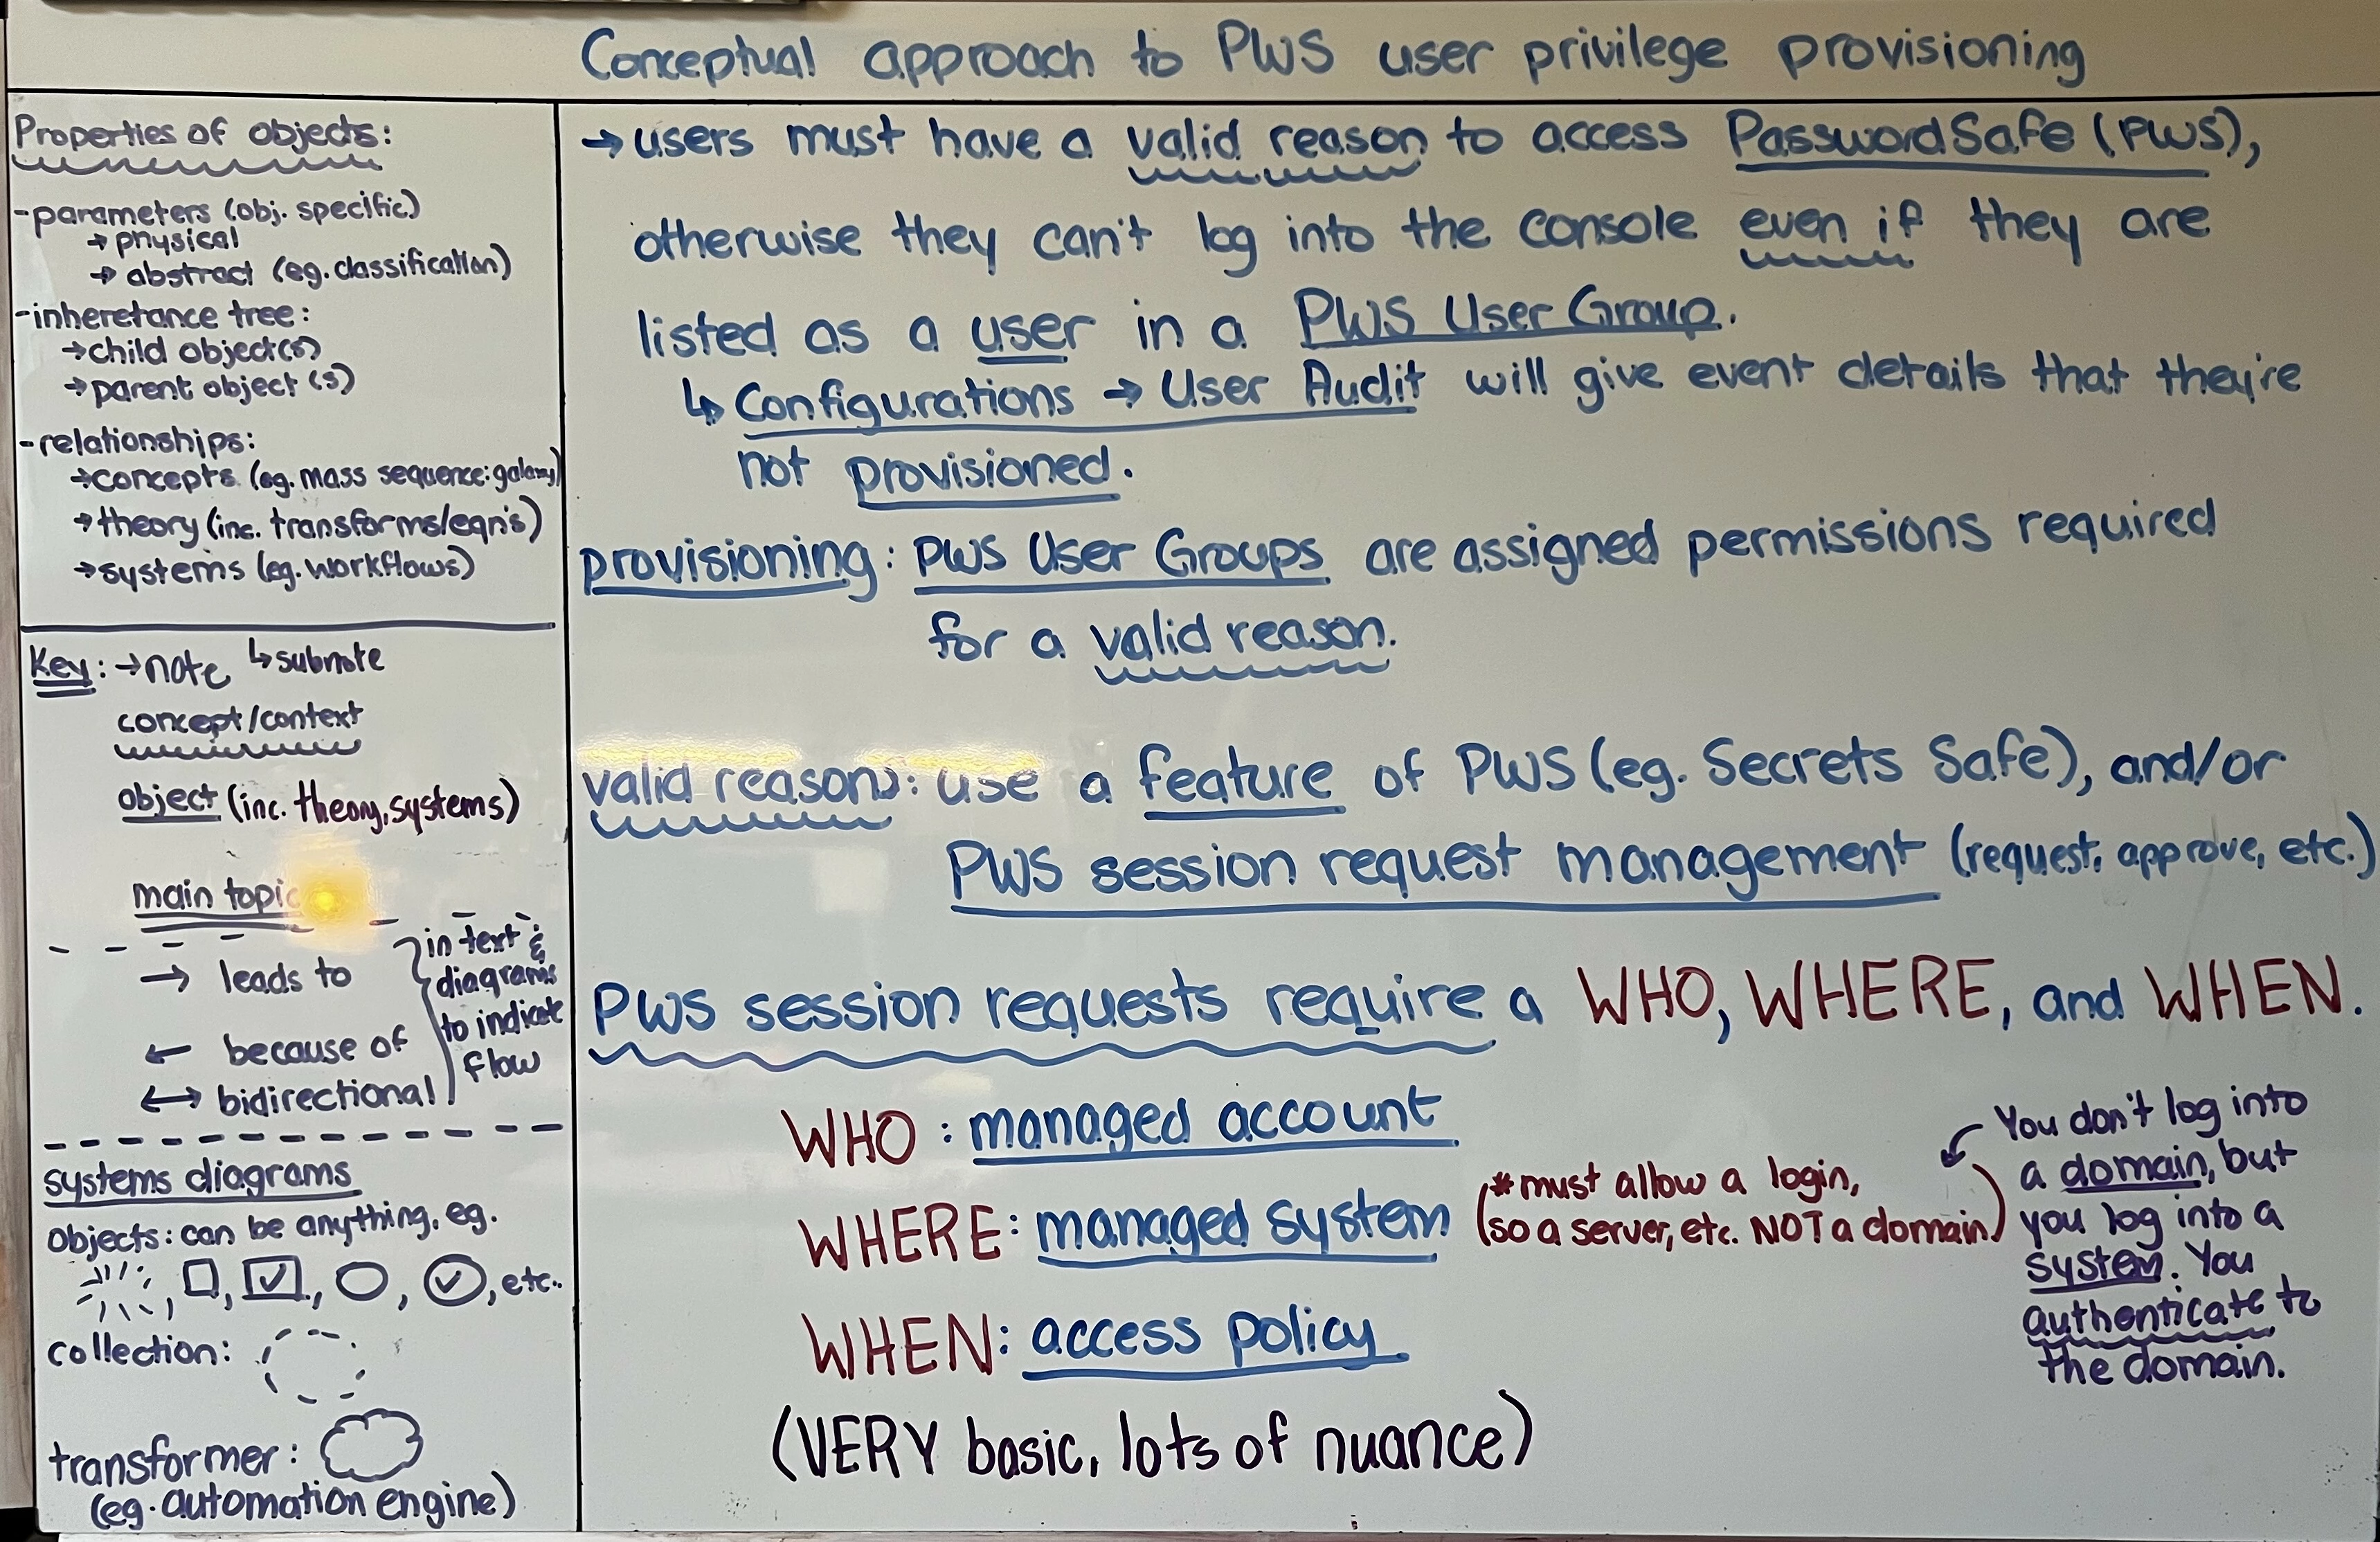 Conceptual approach to PWS user privilege provisioning
Properties of objects:
-parameters (obj. specific)
→ physical
→ abstract (eg. classification)
-inheretance tree:
→child object(s)
→parent object (s)
-relationships:
→concepts (eg. mass sequence: galaxy)
→theory (inc. transforms/eqn's)
→systems (eg. workflows)
Key: →note ↳subnote
concept/context
object (inc. theory, systems)
main topic
→ leads to
← because of
↔ bidirectional
in text &
diagrams
to indicate
flow
systems diagrams
objects: can be anything, eg.
, , , , , etc..
collection:
transformer:
(eg. automation engine)
→users must have a valid reason to access PasswordSafe (PWS),
otherwise they can't log into the console even if they are
listed as a user in a PWS User Group.
↳ Configurations → User Audit will give event details that they're
not provisioned.
provisioning: PWS User Groups are assigned permissions required
for a valid reason.
valid reason: use a feature of PWS (eg. Secrets Safe), and/or
PWS session request management (request, approve, etc.)
PWS session requests require a WHO, WHERE, and WHEN.
WHO: managed account
WHERE: managed system
(*must allow a login,
so a server, etc. NOT a domain.)
WHEN: access policy
(VERY basic, lots of nuance)
You don't log into
a domain, but
you log into a
system. You
authenticate to
the domain.